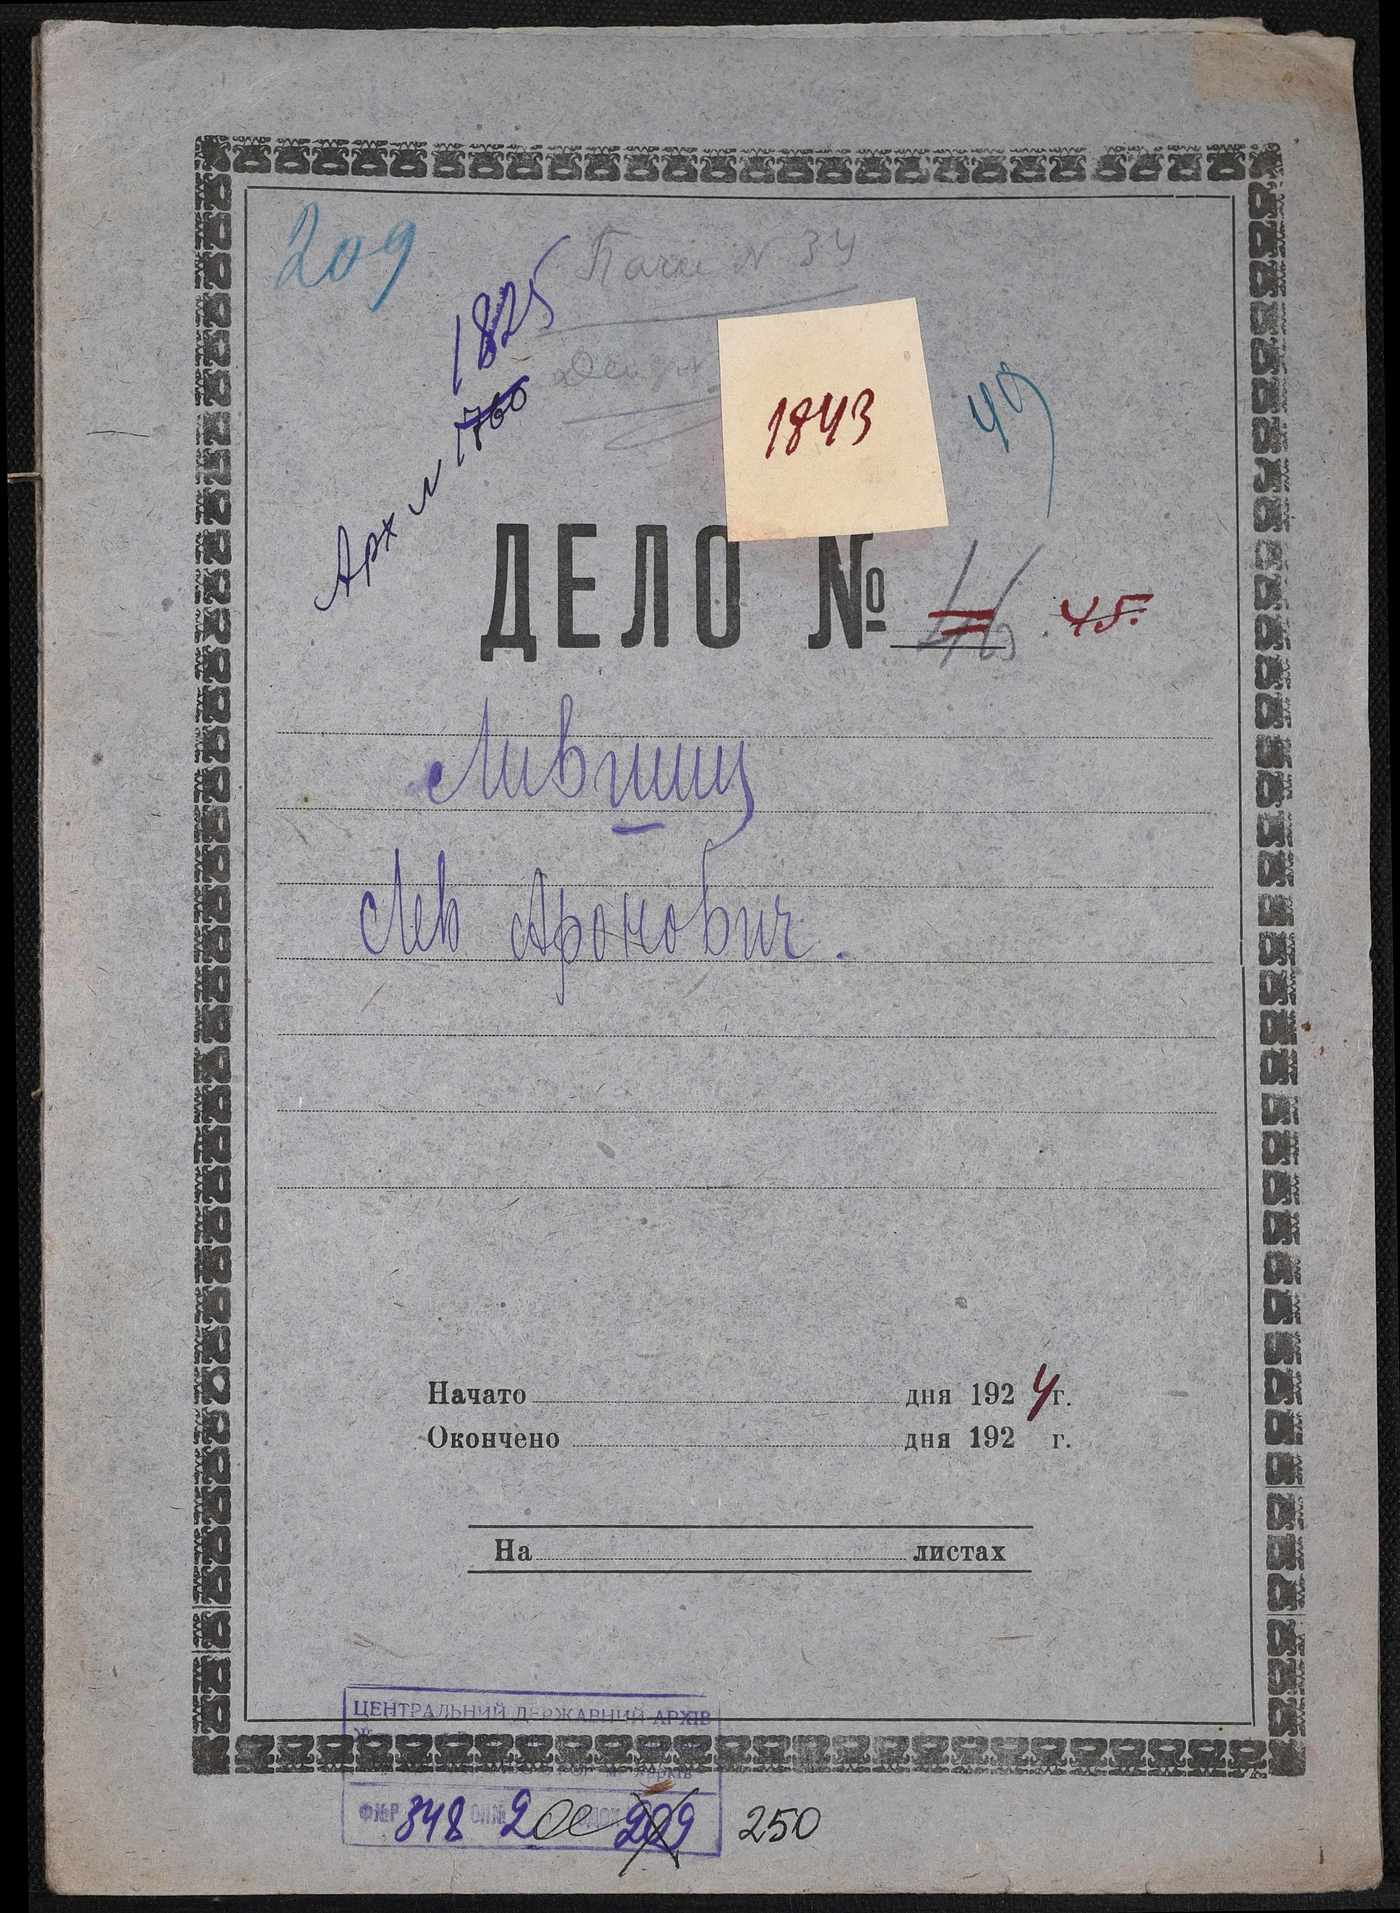 209
Пачка N 34
1825
1760
Арх N
1843
49
ДЕЛО № 46 45.
Лившиц
Лев Аронович.
Начато дня 1924 г.
Окончено дня 192 г.
На листах
ЦЕНТРАЛЬНИЙ ДЕРЖАВНИЙ АРХІВ
Харків
Ф№Р 348 ОП№ 2 ос 209 250